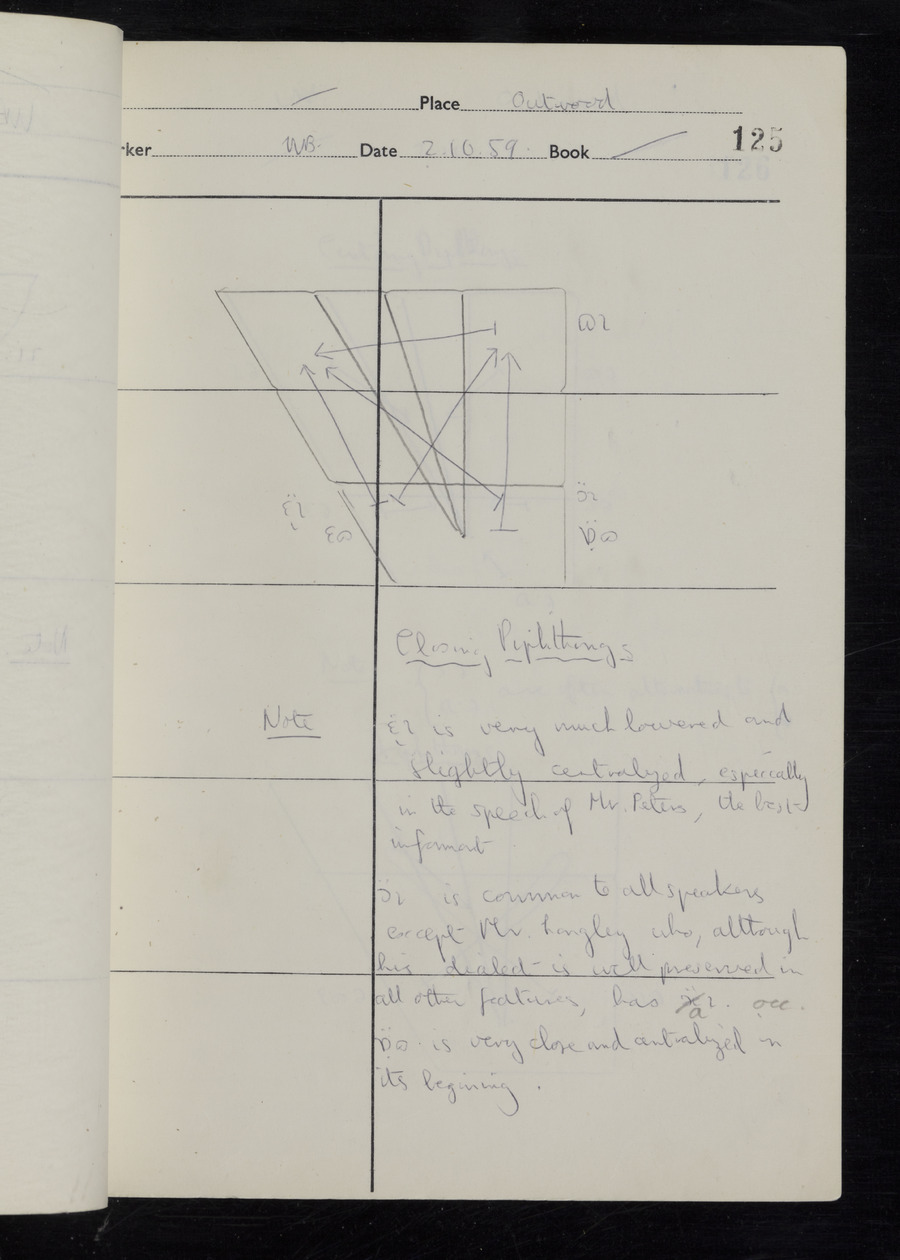 Place Outwood
ker WB. Date 2.10.59. Book 125
ɷɩ
ɔ̈ɩ
ɛ̞̈ɩ
ɛɷ
ɒ̣̈ɷ
Closing Diphthongs
Note
ɛ̞̈ɩ is very much lowered and
slightly centralized, especially
in the speech of Mr. Peters, the best
informant
ɔ̈ɩ is common to all speakers
except Mr. Langley who, although
his dialect is well preserved in
all other features, has occ.
ɒ̣̈ɷ is very close and centralized in
its begining.